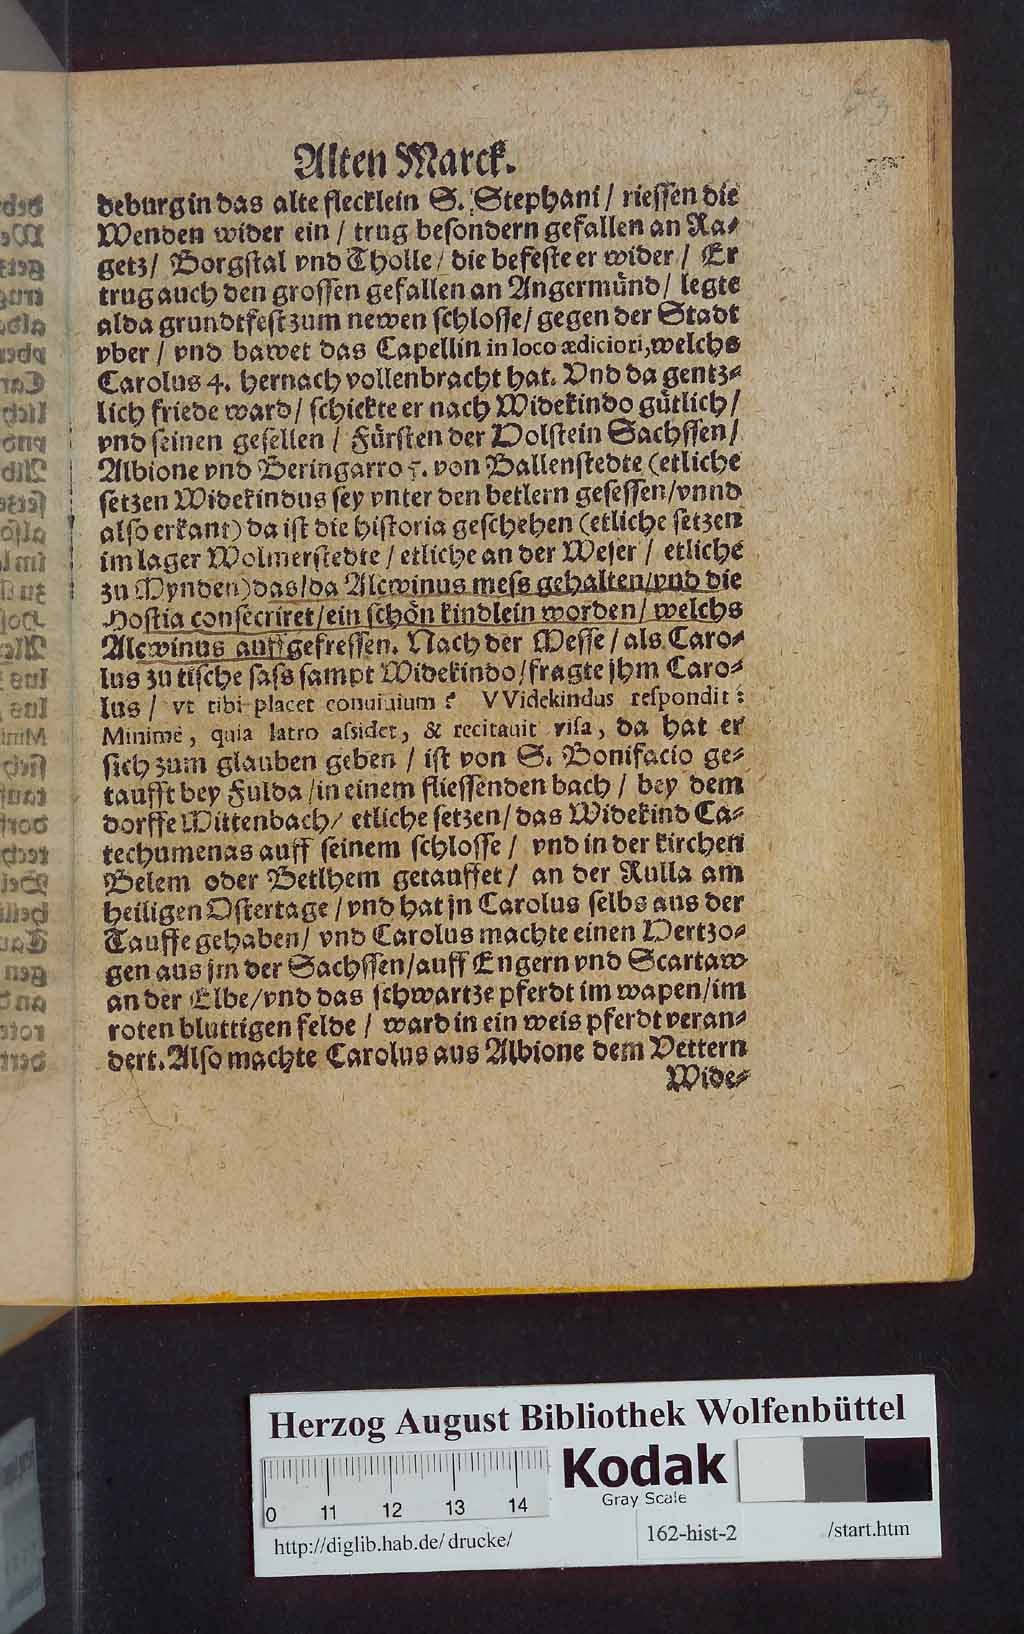 Alten Marck.
deburg in das alte flecklein S. Stephani / riessen die
Wenden wider ein / trug besondern gefallen an Ra-
getz / Borgstal vnd Tholle / die befeste er wider / Er
trug auch den grossen gefallen an Angermünd / legte
alda grundtfest zum newen schlosse / gegen der Stadt
vber / vnd bawet das Capellin in loco ædiciori, welchs
Carolus 4. hernach vollenbracht hat. Vnd da gentz-
lich friede ward / schickte er nach Widekindo gütlich /
vnd seinen gesellen / Fürsten der Holstein Sachssen /
Albione vnd Beringarro 5. von Ballenstedte (etliche
setzen Widekindus sey vnter den betlern gesessen / vnnd
also erkant) da ist die historia geschehen (etliche setzen
im lager Wolmerstedte / etliche an der Weser / etliche
zu Mynden) das / da Alcwinus mess gehalten / vnd die
Hostia consecriret / ein schön kindlein worden / welchs
Alcwinus auffgefressen. Nach der Messe / als Caro-
lus zu tische sass sampt Widekindo / fragte jhm Caro-
lus / vt tibi placet conuiuium ? VVidekindus respondit :
Minimè, quia latro assidet, & recitauit visa, da hat er
sich zum glauben geben / ist von S. Bonifacio ge-
taufft bey Fulda / in einem fliessenden bach / bey dem
dorffe Mittenbach / etliche setzen / das Widekind Ca-
techumenas auff seinem schlosse / vnd in der kirchen
Belem oder Betlhem getauffet / an der Rulla am
heiligen Ostertage / vnd hat jn Carolus selbs aus der
Tauffe gehaben / vnd Carolus machte einen Hertzo-
gen aus jm der Sachssen / auff Engern vnd Scartaw
an der Elbe / vnd das schwartze pferdt im wapen / im
roten bluttigen felde / ward in ein weis pferdt veran-
dert. Also machte Carolus aus Albione dem Vettern
Wide-
Herzog August Bibliothek Wolfenbüttel
Kodak
Gray Scale
0 11 12 13 14
http://diglib.hab.de/drucke/ 162-hist-2 /start.htm